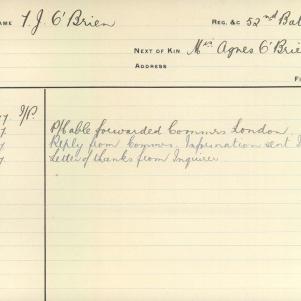 NAME T. J. O'Brien REG. &C 52nd Bat
NEXT OF KIN Mrs Agnes O'Brie
ADDRESS
I/P. P/Cable forwarded Commrs London.
Reply from Commrs. Information sent
Letter of thanks from Inquirer